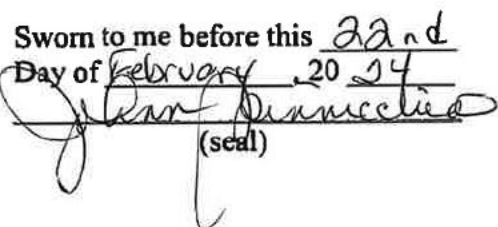 Sworn to me before this 22nd
Day of February, 20 24
(seal)